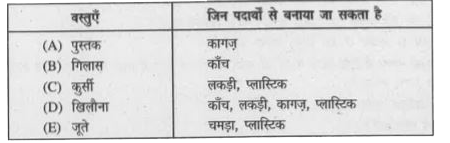 वस्तुएँ जिन पदार्थों से बनाया जा सकता है
(A) पुस्तक कागज़
(B) गिलास काँच
(C) कुर्सी लकड़ी, प्लास्टिक
(D) खिलौना काँच, लकड़ी, कागज़, प्लास्टिक
(E) जूते चमड़ा, प्लास्टिक